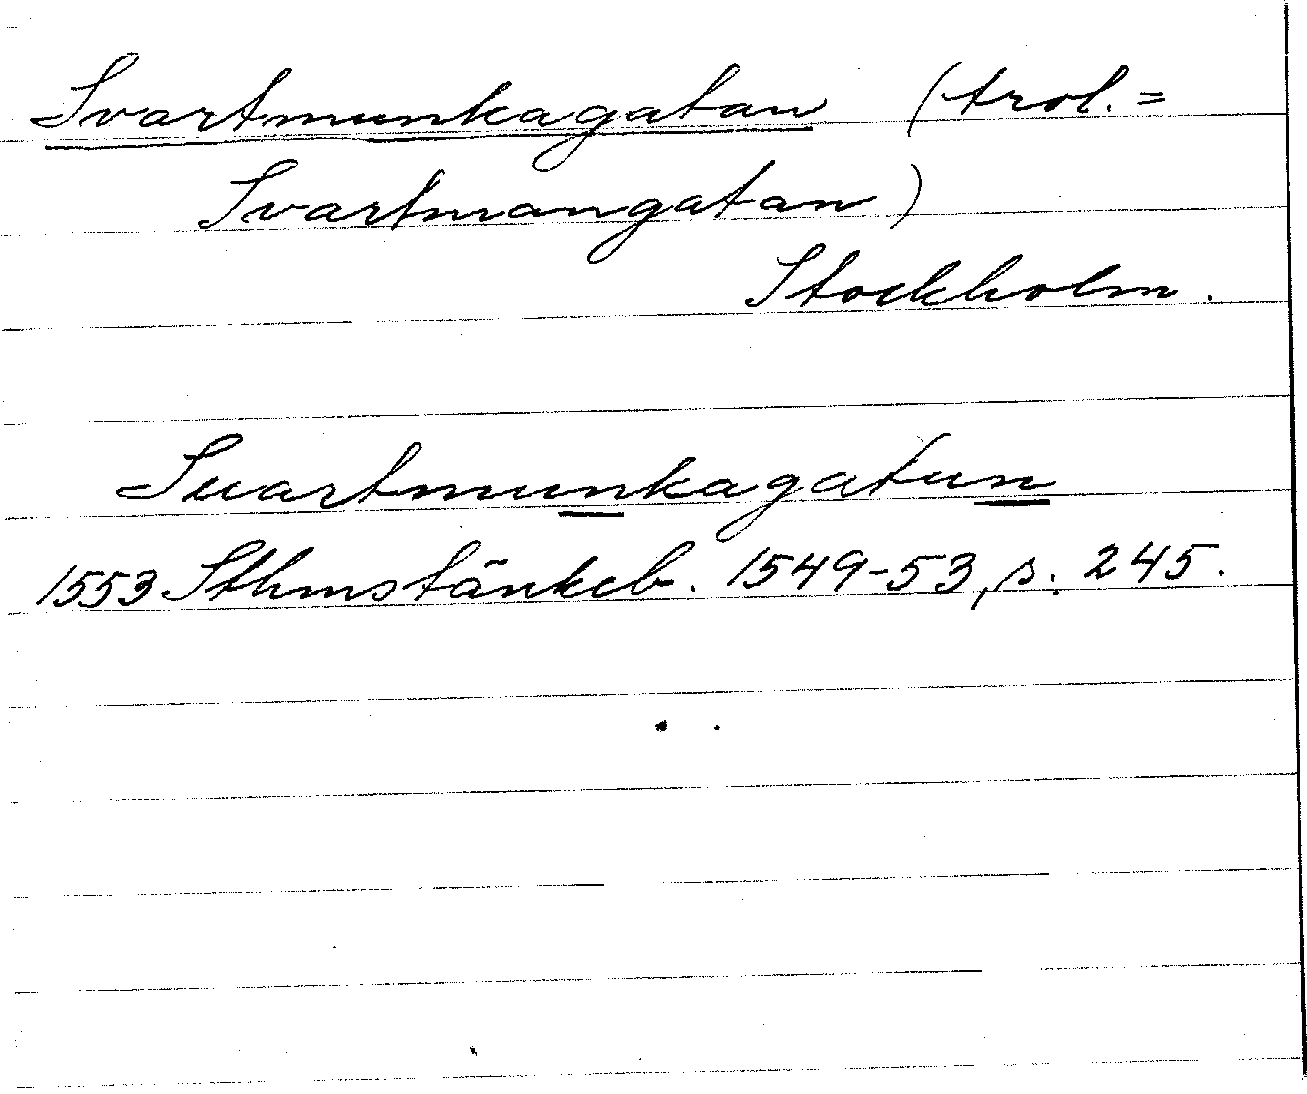 Svartmunkagatan (trol. =
Svartmangatan)
Stockholm.
Suartmunkagatun
1553 Sthmstänkeb. 1549-53, s. 245.